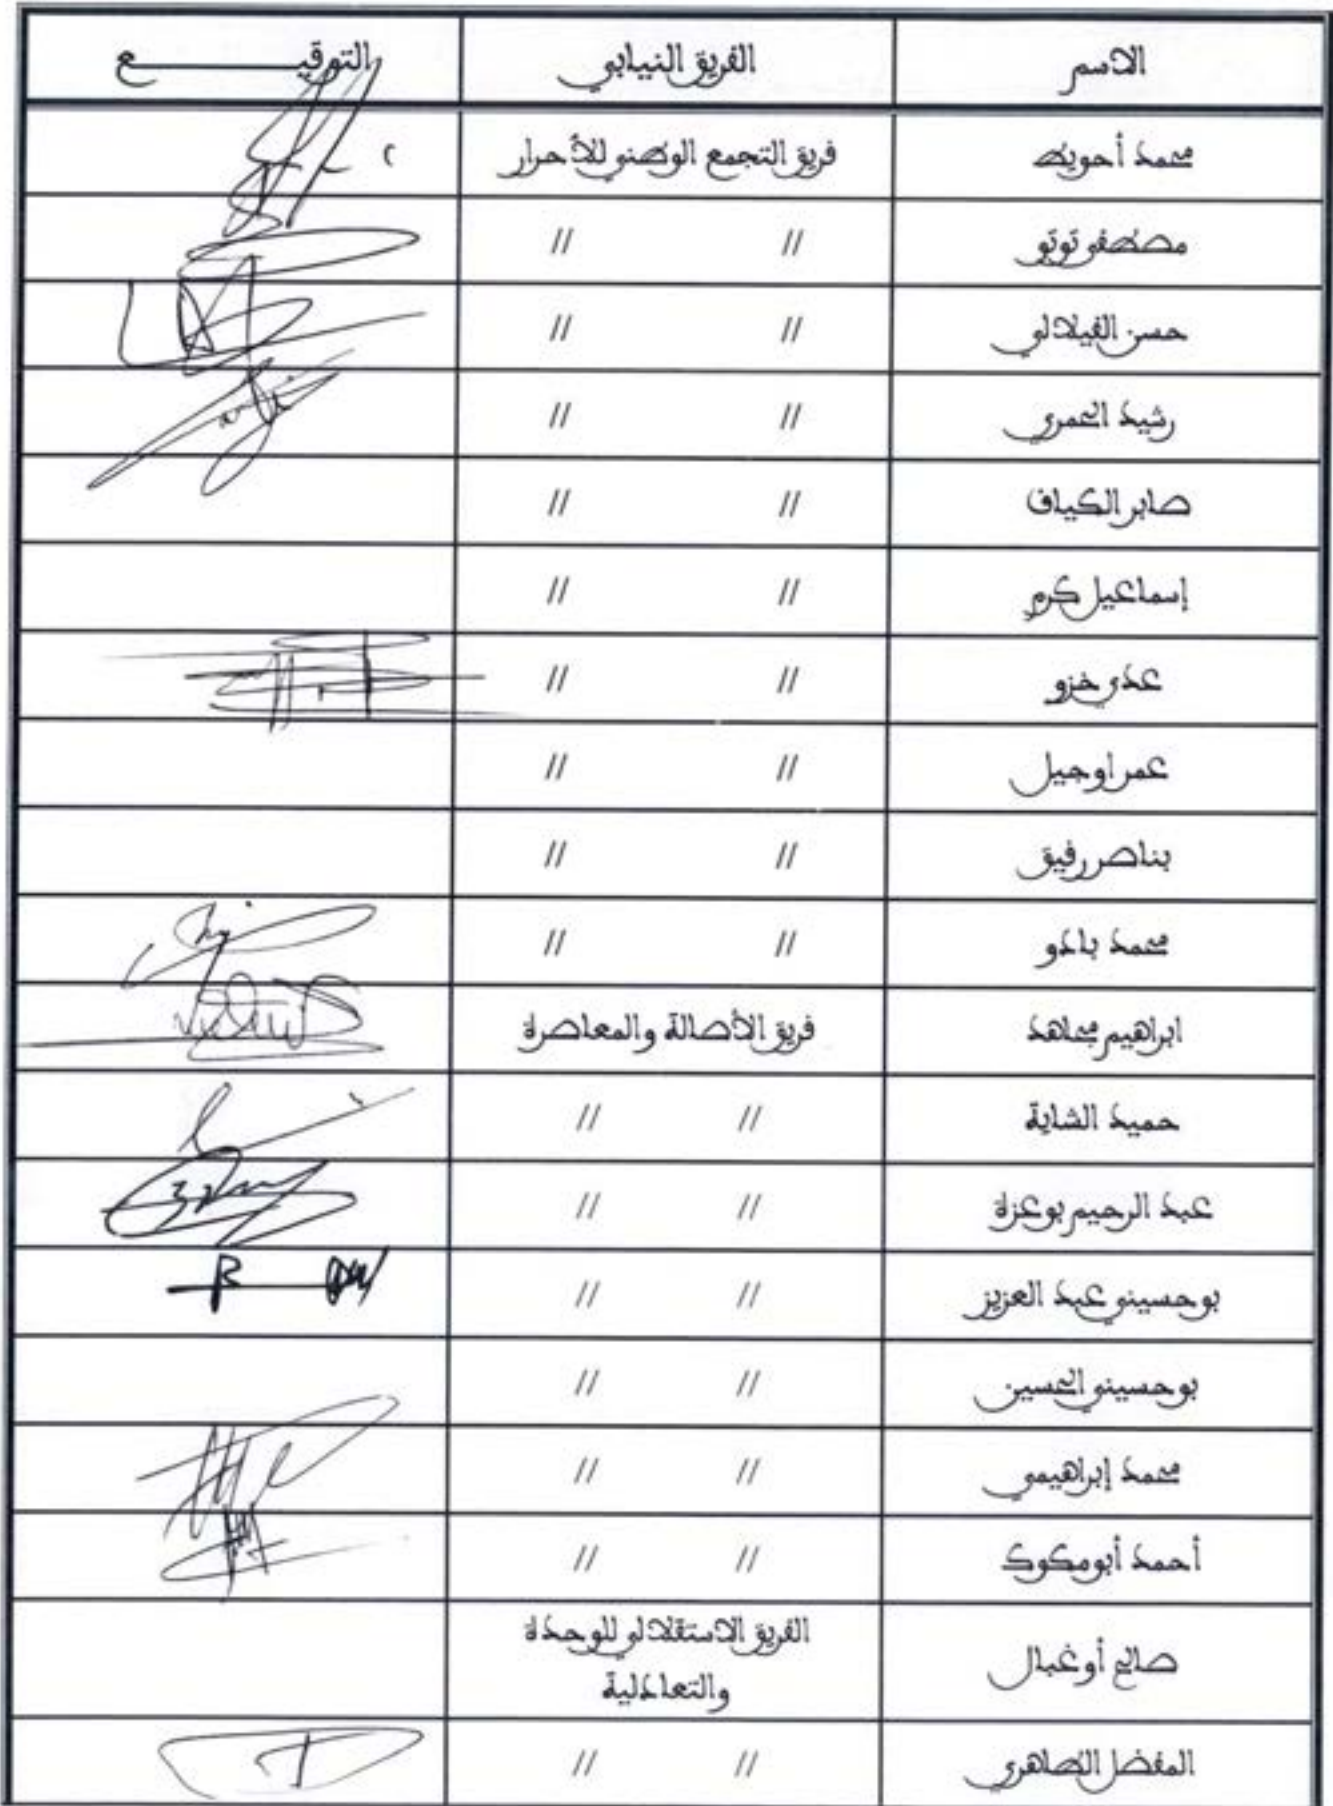 الاسم الفريق النيابي التوقيـــــــــع
محمد أحويط فريق التجمع الوطني للأحرار
مصطفى توتو // //
حسن الفيلالي // //
رشيد الحمري // //
صابر الكياف // //
إسماعيل كرم // //
عدي خزو // //
عمر اوجيل // //
بناصر رفيق // //
محمد بادو // //
ابراهيم مجاهد فريق الأصالة والمعاصرة
حميد الشاية // //
عبد الرحيم بوعزة // //
بوحسيني عبد العزيز // //
بوحسيني الحسين // //
محمد إبراهيمي // //
أحمد أبومكوك // //
صالح أوغبال الفريق الاستقلالي للوحدة
والتعادلية
المفضل الطاهري // //